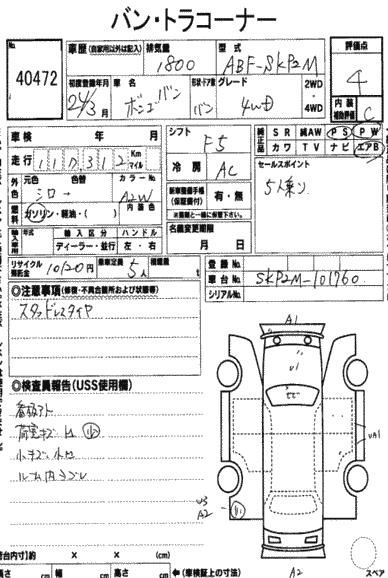 バン・トラコーナー
No.
40472
車歴 (自家用以外は記入)
排気量 1800
型式 ABF-SKP2M
評価点 4
初度登録年月 24/3月
車名 ボンゴ バン
形状・ドア数 バン
グレード 4WD
2WD・4WD
内装補助評価 C
車検 年 月
シフト F5
純正品 SR 純AW PS PW
カワ TV ナビ エアB
走行 117312 Km マイル
冷房 AC
セールスポイント
5人乗り
外色 元色 シロ 色替 カラーNo. A2W
内装色
燃料 ガソリン・軽油・( )
新車整備手帳(保証書付) 有・無
※書類と一緒に保管下さい。
名義変更期限 月 日
輸入車用 年式 輸入区分 ハンドル
ディーラー・並行 左・右
リサイクル預託金 10120円
乗車定員 5人
積載量 t
登録No.
車台No. SKP2M-101760
シリアルNo.
◎注意事項(※修復・不具合箇所および状態等)
スタッドレスタイヤ
◎検査員報告(USS使用欄)
看板アト
荷室キズ
小キズ
ルーム内
A1
U1
UA1
U3
A2
A2
荷台内寸)約 × × (cm)
長さ cm 幅 cm 高さ cm ←(車検証上の寸法)
スペア